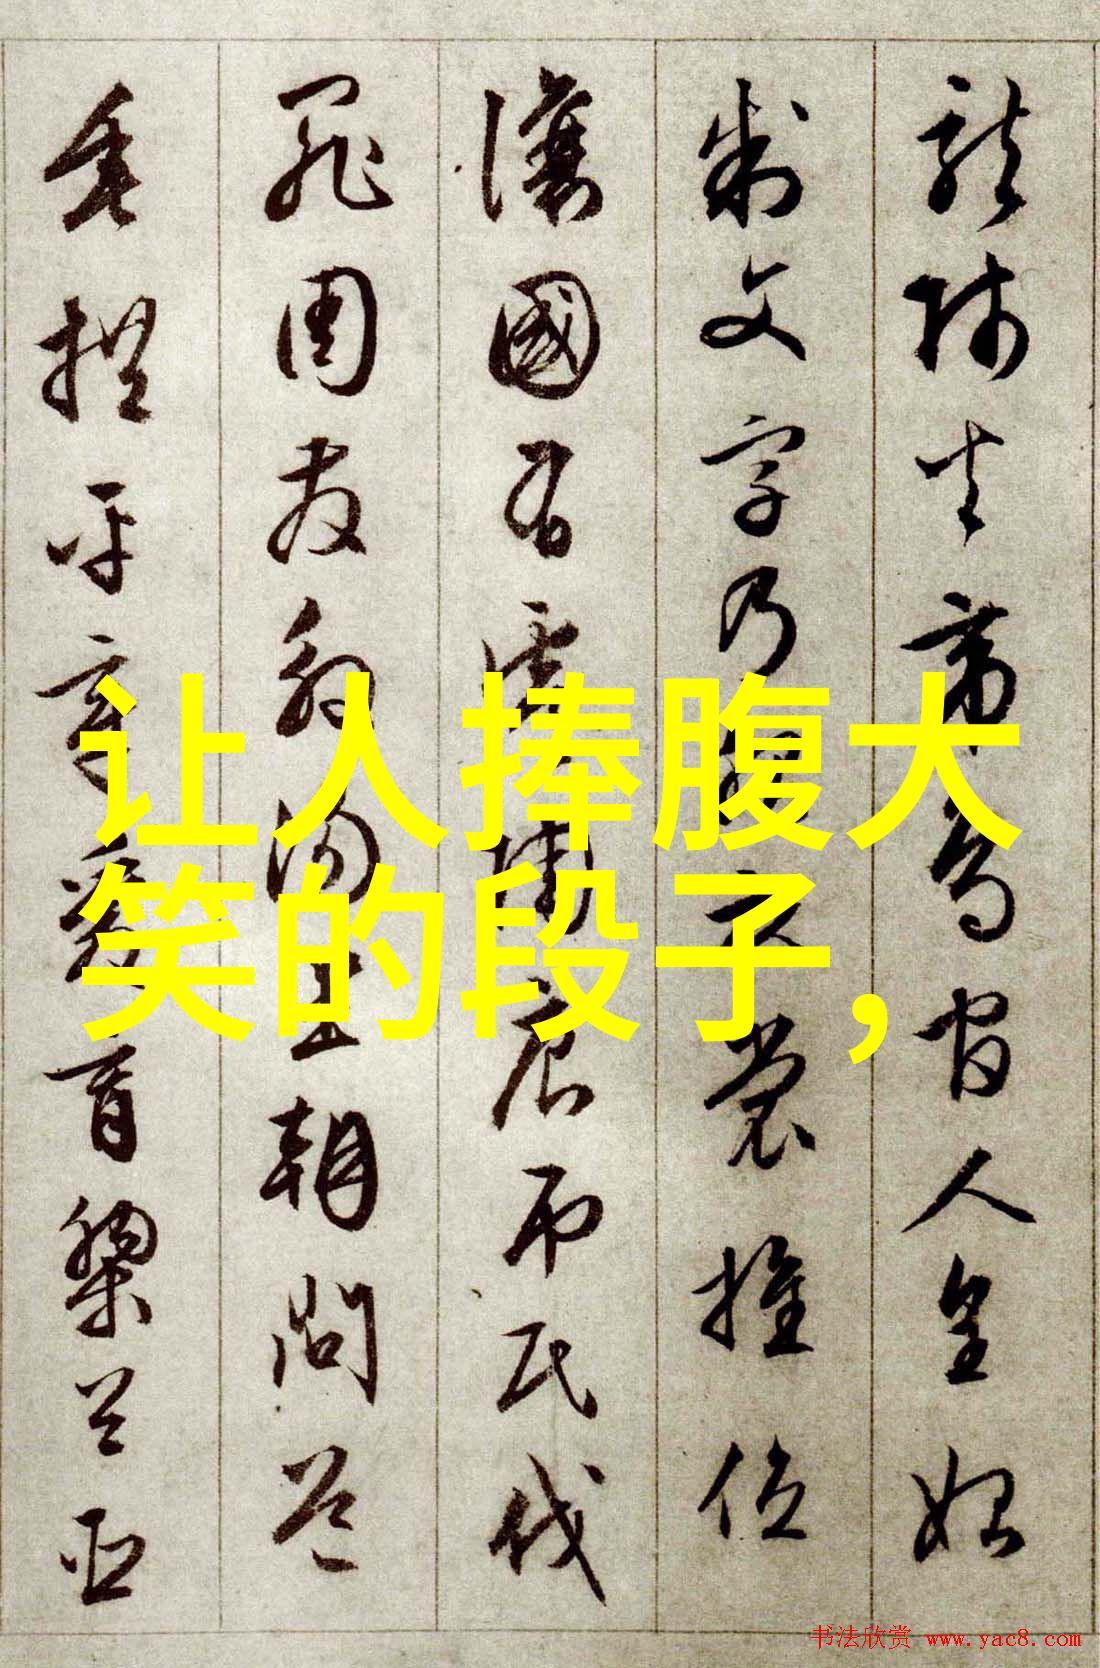 龍師火帝鳥官人皇始
制文字乃服衣裳推位
讓國有虞陶唐吊民伐
罪周發殷湯坐朝問道
垂拱平章愛育黎首臣
让人捧腹大
笑的段子，
书法欣赏 www.yac8.com